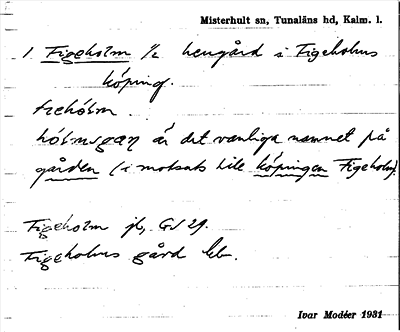 Misterhult sn, Tunaläns hd, Kalm. l.
1. Figeholm 1/2 herrgård i Figeholms
köping.
hólmsgạn är det vanliga namnet på
gården (i motsats till köpingen Figeholm).
Figeholm jb, GS 29.
Figeholms gård
Ivar Modéer 1931